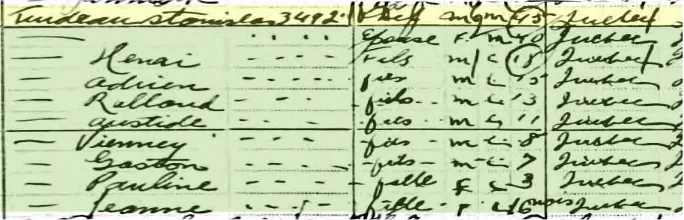 Trudeau Stanislas 3492 Chef m m 45 Quebec
— " " " " Epouse F m 40 Quebec
— Henri - - - - Fils m C 18 Quebec
— Adrien - - - - fils m C 15 Quebec
— Rolland - - - - fils m C 13 Quebec
— Aristide - - - - fils m C 11 Quebec
— Vienney - - - - fils m C 8 Quebec
— Gaston - - - - fils m C 7 Quebec
— Pauline - - - - fille F C 3 Quebec
— Jeanne - - - - fille F C Quebec